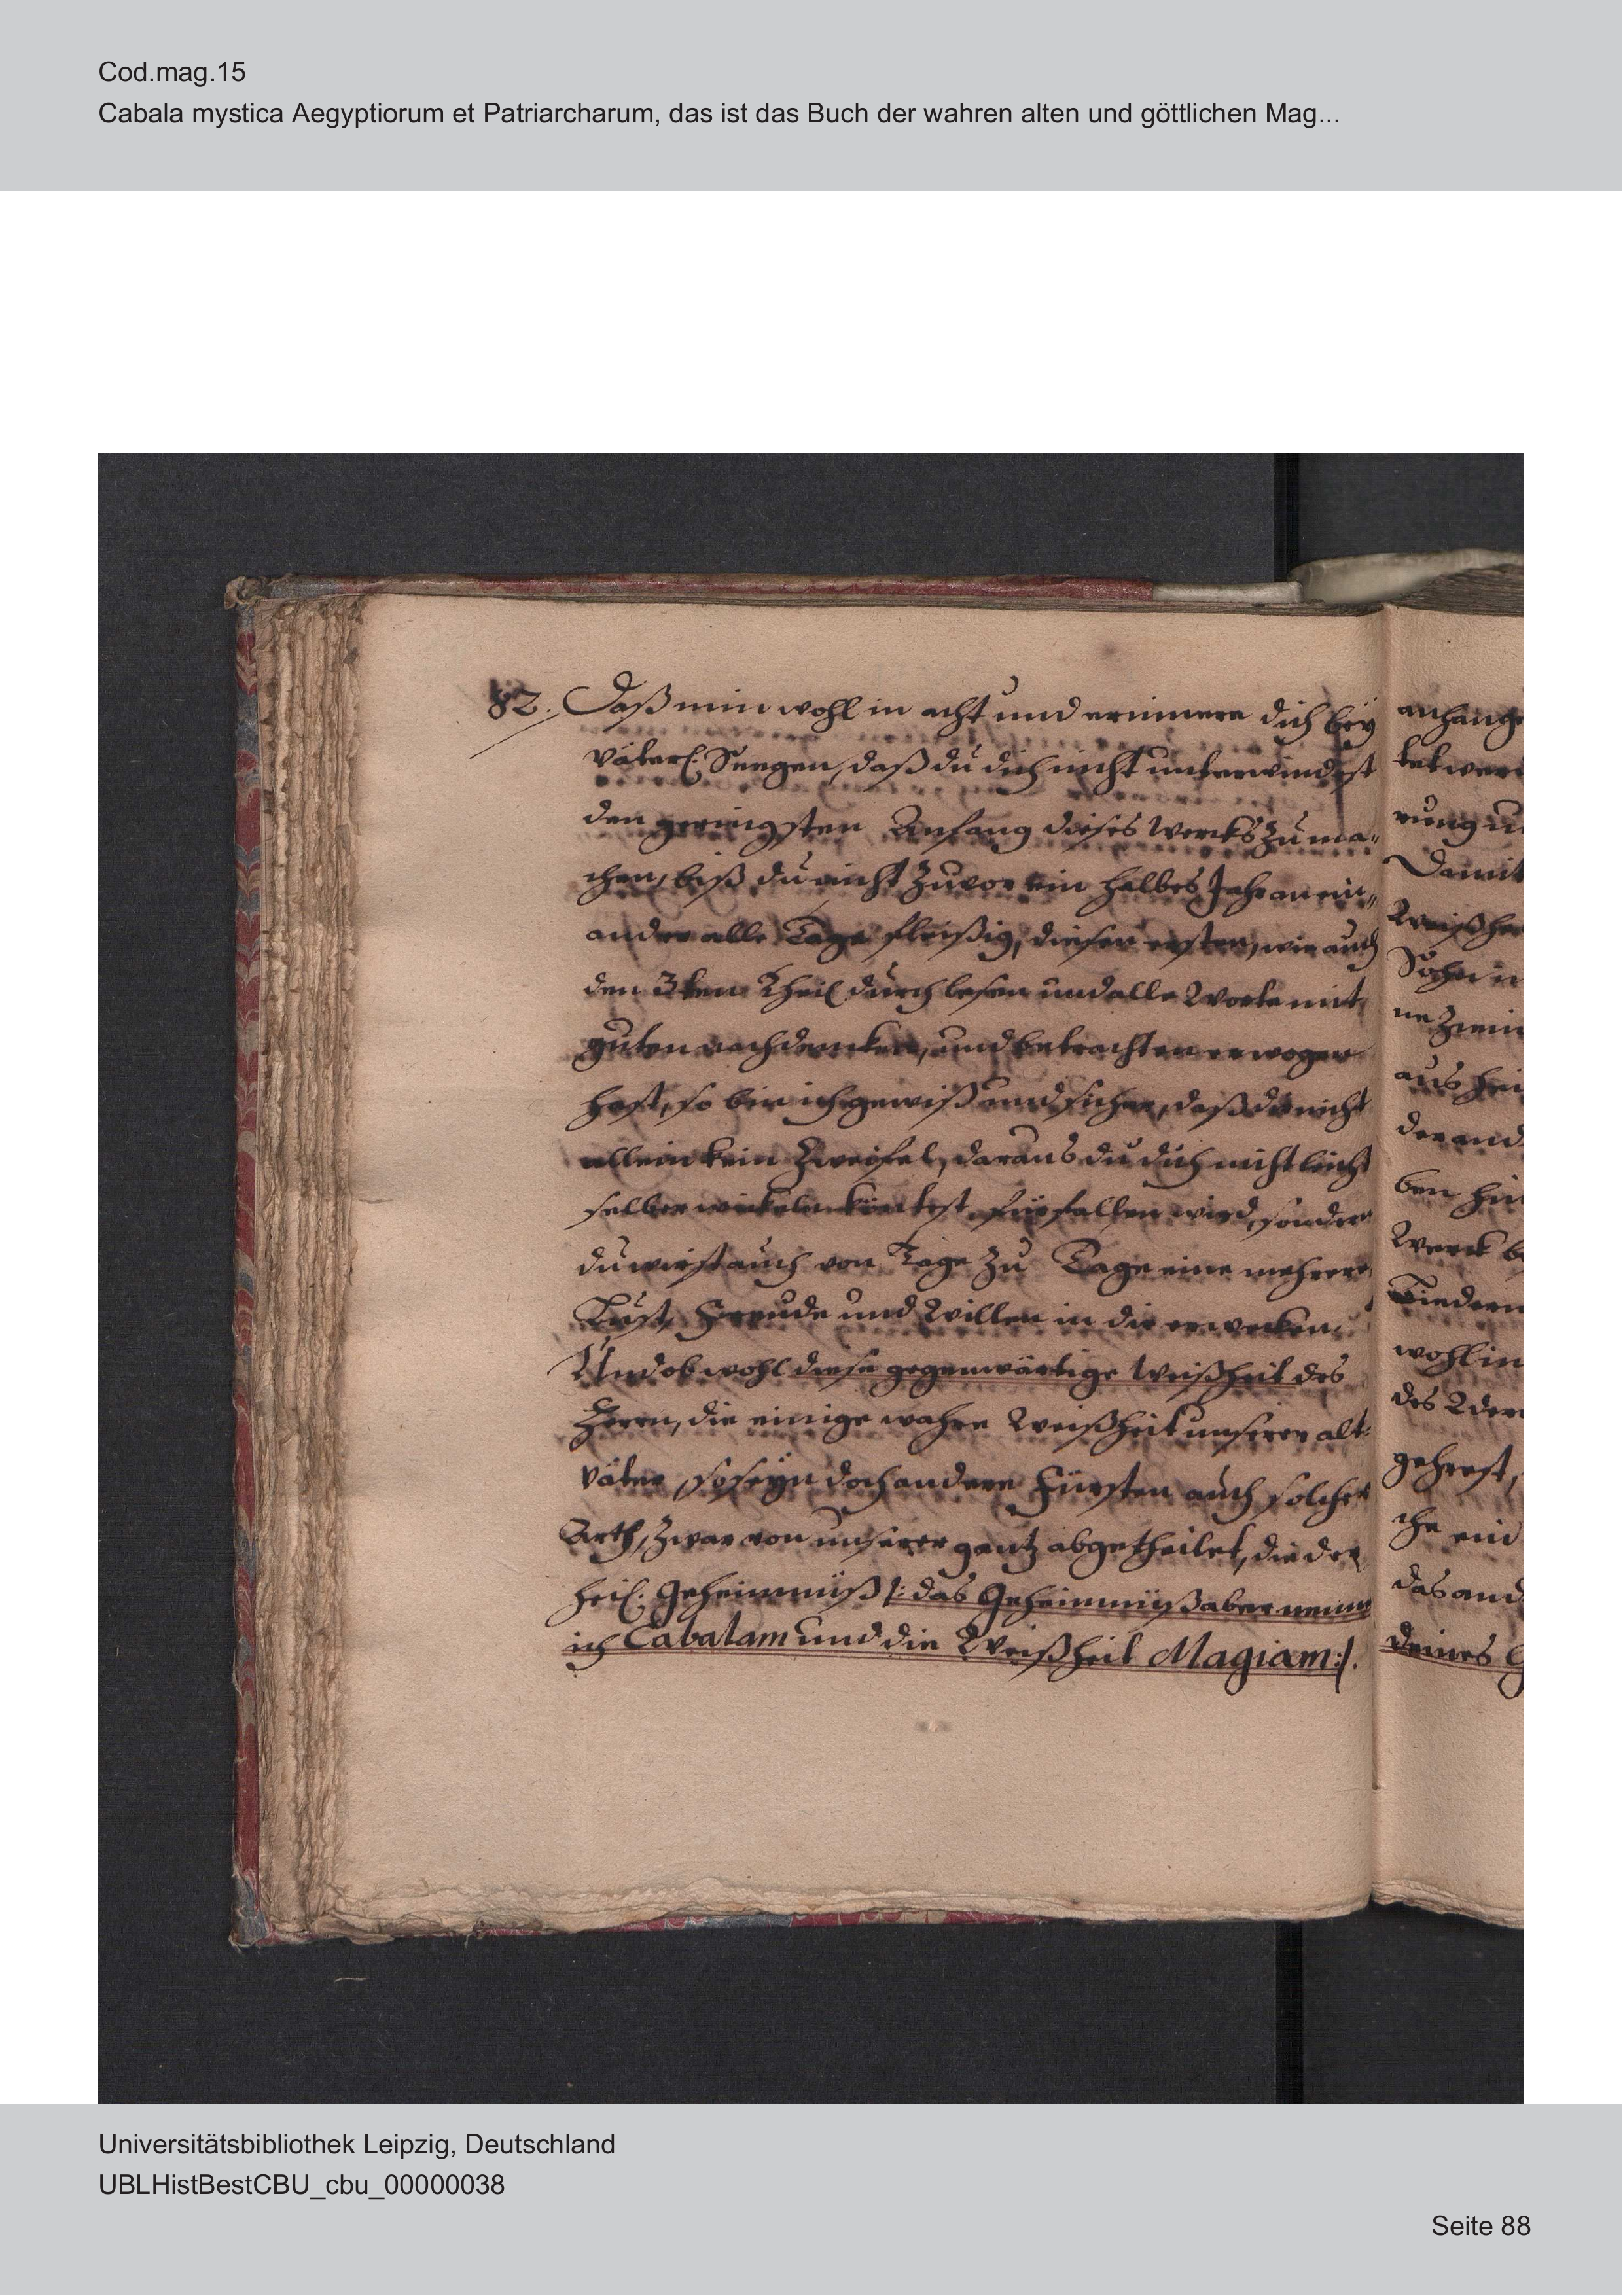 Cod.mag.15
Cabala mystica Aegyptiorum et Patriarcharum, das ist das Buch der wahren alten und göttlichen Mag...
82. Daß nim wohl in acht und erinnere dich beÿ
väterl: Seegen, daß du dich nicht unterwindest
den geringsten Anfang dieses Wercks zu ma-
chen, biß du nicht zuvor ein halbes Jahr an ein-
ander alle Tage fleißig, diesen ersten, wie auch
den 3ten Theil durchlesen und alle Worte mit
guten nachdencken, und betrachten erwogen
hast, so bin ich gewiß und sicher, daß du nicht
allein kein Zweifel, daraus du dich nicht leicht
selber wickeln köntest fürfallen wird, sondern
du wirst auch von Tage zu Tage eine mehrere
Lust, Freude und Willen in dir erwecken.
Und obwohl diese gegenwärtige Weißheit des
Herrn, die einige wahre Weißheit unserer alt-
väter, so seÿn doch andere Fürsten auch solcher
Arth, zwar von unserer gantz abgetheilet, die der
heil: Geheimnüß /: das Geheimnüß aber nenne
ich Cabalam und die Weißheit Magiam :/.
anhang
tet wer
rung u
Damit
Weißhe
Sohn
ne
aus
der and
ben hin
Werck b
Liedern
wohl in
des
gehrest,
che ein
das and
deines G
Universitätsbibliothek Leipzig, Deutschland
UBLHistBestCBU_cbu_00000038
Seite 88